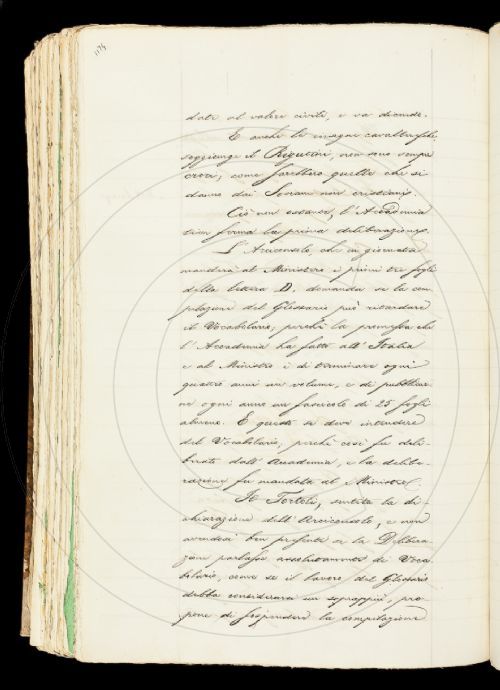 date al valore civile, e va dicendo.
E anche le insegne cavalleresche,
soggiunge il Rigutini, non sono sempre
croci; come sarebbero quelle che si
danno dai Sovrani non cristiani.
Ciò non ostante, l'Accademia
tien ferma la prima deliberazione.
L'Arciconsolo, che in giornata
manderà al Ministero i primi tre fogli
della lettera D, domanda se la com-
pilazione del Glossario può ritardare
il Vocabolario; perchè la promessa che
l'Accademia ha fatto all'Italia
e al Ministro è di terminare ogni
quattro anni un volume, e di pubblicar-
ne ogni anno un fascicolo di 25 fogli
almeno. E questo si deve intendere
del Vocabolario, perchè così fu deli-
berato dall'Accademia, e la delibe-
razione fu mandata al Ministro.
Il Tortoli, sentita la di-
chiarazione dell'Arciconsolo, e non
avendo ben presente se la Delibera-
zione parlasse assolutamente di Voca-
bolario, come se il lavoro del Glossario
debba considerarsi un soprappiù, pro-
pone di sospendere la compilazione